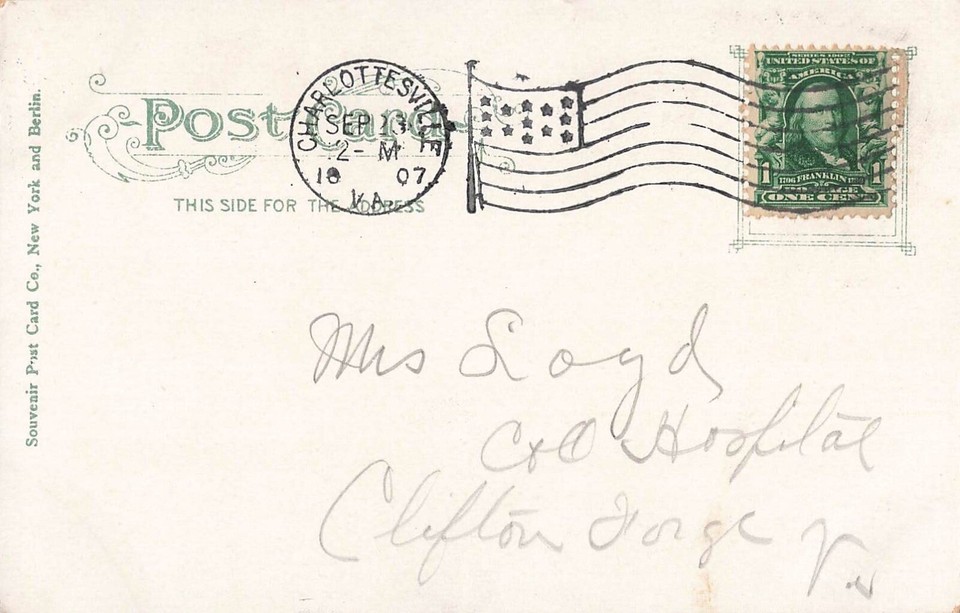 Post Card
THIS SIDE FOR THE ADDRESS
CHARLOTTESVILLE
SEP 13
2- M
19 07
VA.
SERIES 1902
UNITED STATES OF
AMERICA
1706 FRANKLIN 1790
1 1
POSTAGE
ONE CENT
Souvenir Post Card Co., New York and Berlin.
Mrs Loyd
C&O Hospital
Clifton Forge
Va